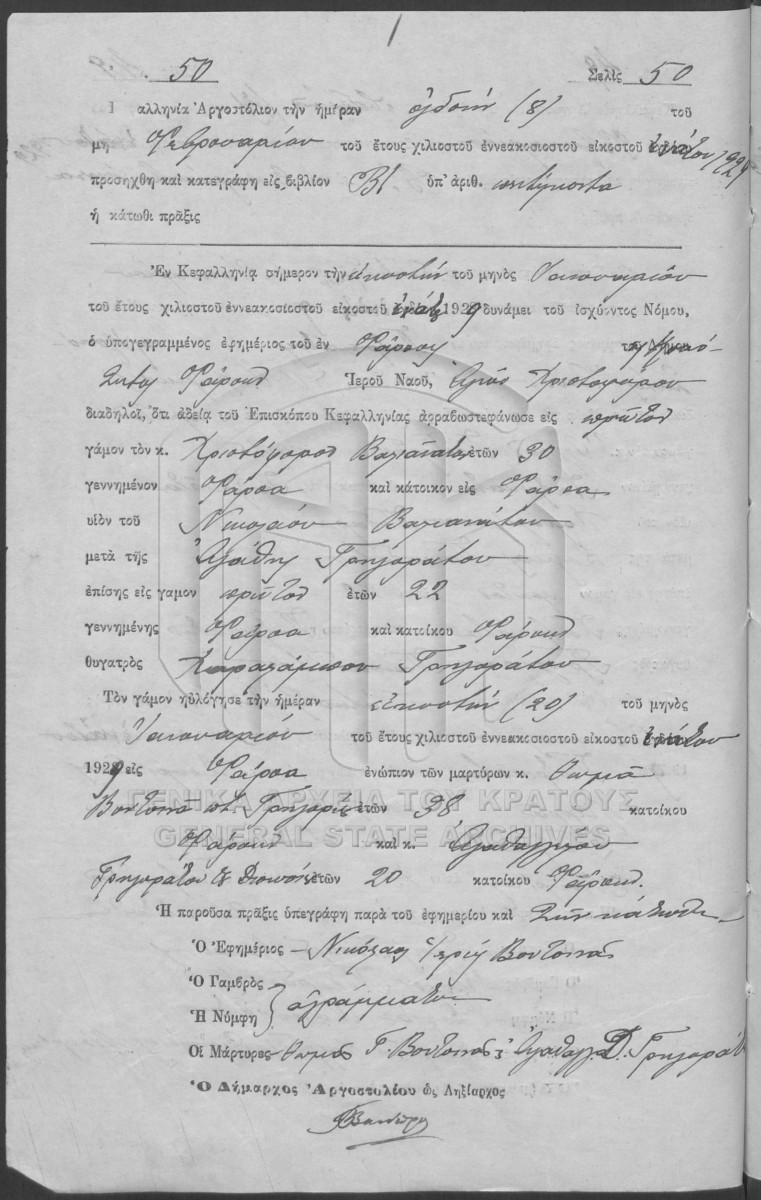 50 Σελὶς 50
αλληνία Ἀργοστόλιον τὴν ἡμέραν ὀγδόην (8) τοῦ
μη Φεβρουαρίου τοῦ ἔτους χιλιοστοῦ ἐννεακοσιοστοῦ εἰκοστοῦ ἐνάτου 1929
προσηχθη καὶ κατεγράφη εἰς βιβλίον Β/ ὑπ' ἀριθ. πεντήκοντα
ἡ κάτωθι πρᾶξις
Ἐν Κεφαλληνίᾳ σήμερον τὴν εἰκοστὴν τοῦ μηνὸς Ἰανουαρίου
τοῦ ἔτους χιλιοστοῦ ἐννεακοσιοστοῦ εἰκοστοῦ ἐνάτου 1929 δυνάμει τοῦ ἰσχύοντος Νόμου,
ὁ ὑπογεγραμμένος ἐφημέριος τοῦ ἐν Φάρσοις τῆς Κοινό-
τητος Φάρσων Ἱεροῦ Ναοῦ, Ἁγίου Χριστοφόρου
διαδηλοῖ, ὅτι ἀδείᾳ τοῦ Ἐπισκόπου Κεφαλληνίας ἀρραβωστεφάνωσε εἰς πρῶτον
γάμον τὸν κ. Χριστόφορον Βαγιανάτον ἐτῶν 30
γεννημένον Φάρσα καὶ κάτοικον εἰς Φάρσα
υἱὸν τοῦ Νικολάου Βαγιανάτου
μετὰ τῆς Ἀγάθης Γρηγοράτου
ἐπίσης εἰς γαμον πρῶτον ἐτῶν 22
γεννημένης Φάρσα καὶ κατοίκου Φάρσων
θυγατρὸς Χαραλάμπου Γρηγοράτου
Τὸν γάμον ηὐλόγησε τὴν ἡμέραν εἰκοστὴν (20) τοῦ μηνὸς
Ἰανουαρίου τοῦ ἔτους χιλιοστοῦ ἐννεακοσιοστοῦ εἰκοστοῦ ἐνάτου
1929 εἰς Φάρσα ἐνώπιον τῶν μαρτύρων κ. Θωμᾶ
Βουτσινᾶ Γρηγορίου ἐτῶν 38 κατοίκου
ΓΕΝΙΚΑ ΑΡΧΕΙΑ ΤΟΥ ΚΡΑΤΟΥΣ
GENERAL STATE ARCHIVES
Φάρσων καὶ κ. Ἀγαθαγγέλου
Γρηγοράτου ἐτῶν 20 κατοίκου Φάρσων.
Ἡ παροῦσα πρᾶξις ὑπεγράφη παρὰ τοῦ ἐφημερίου καὶ τῶν κάτωθι
Ὁ Ἐφημέριος – Νικόλαος ἱερεὺς Βουτσινᾶς
Ὁ Γαμβρὸς
Ἡ Νύμφη } ἀγράμματοι
Οἱ Μάρτυρες – Θωμᾶς Γ. Βουτσινᾶς Ἀγαθάγγ. Δ. Γρηγοράτ
Ὁ Δήμαρχος Ἀργοστολίου ὡς Ληξίαρχος